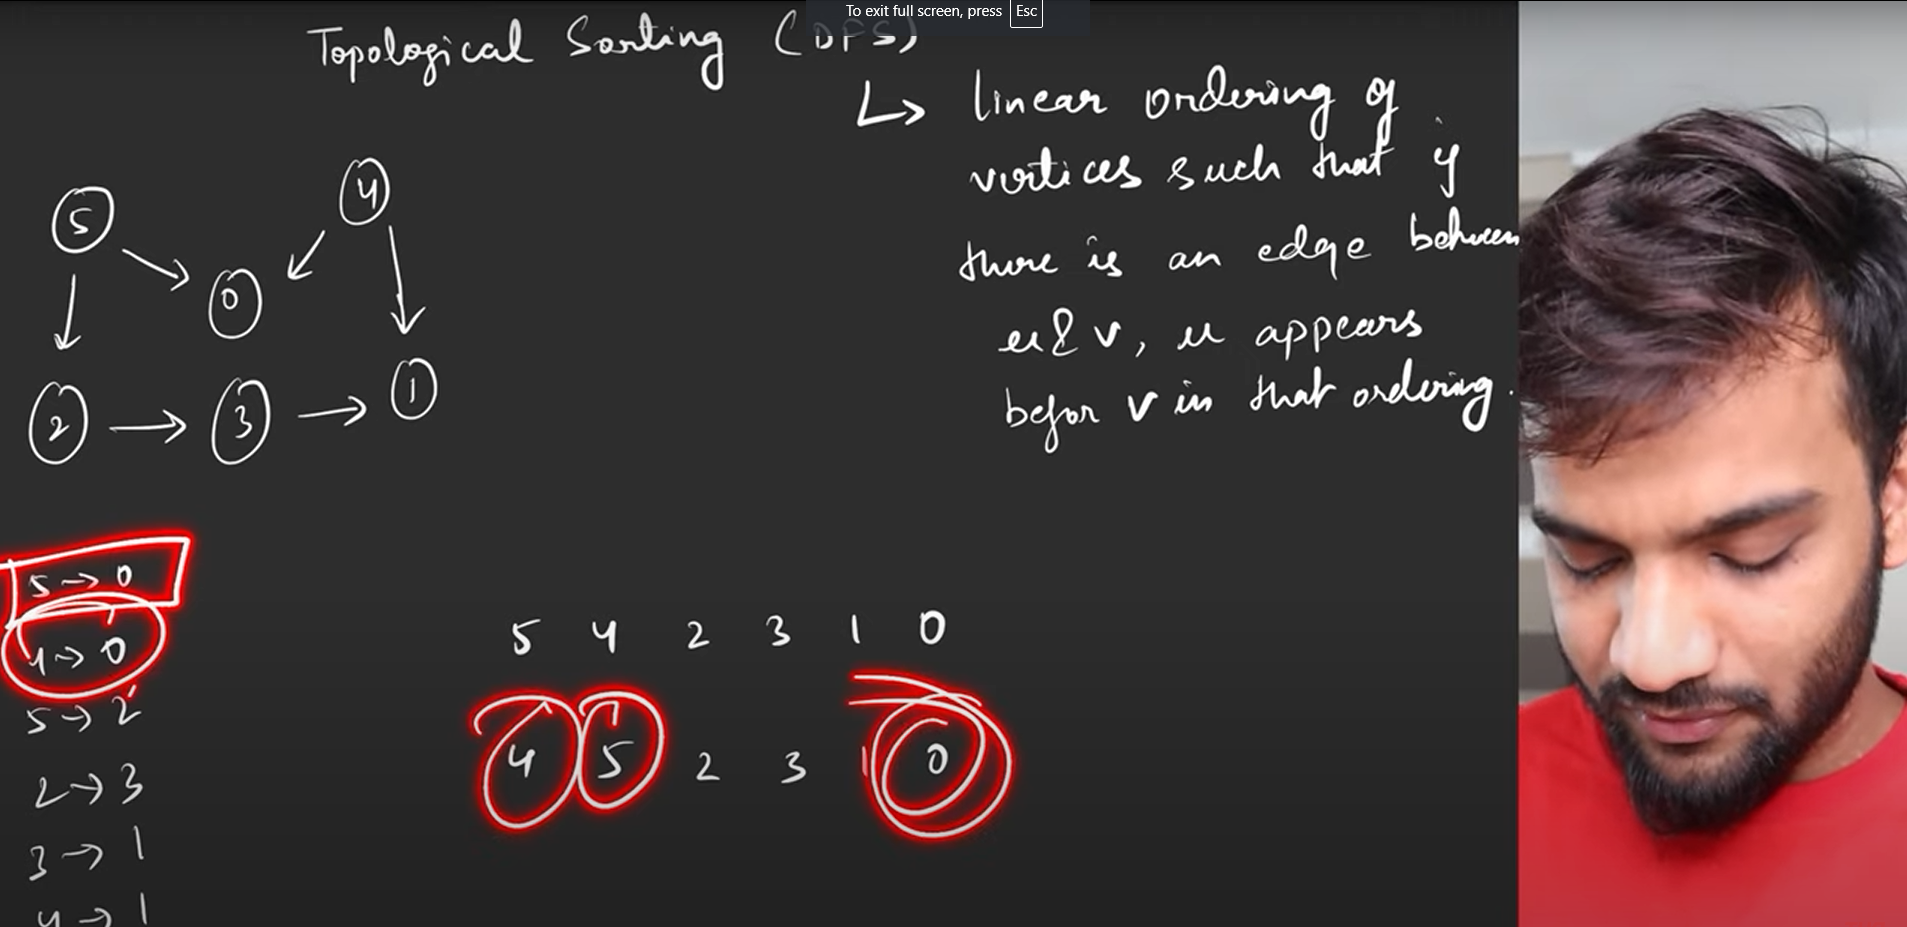 To exit full screen, press Esc
Topological Sorting (DFS)
↳ linear ordering of
vertices such that if
there is an edge between
u & v, u appears
befor v in that ordering.
5 4
0
2 → 3 → 1
5 → 0
4 → 0
5 → 2
2 → 3
3 → 1
4 → 1
5 4 2 3 1 0
4 5 2 3 1 0